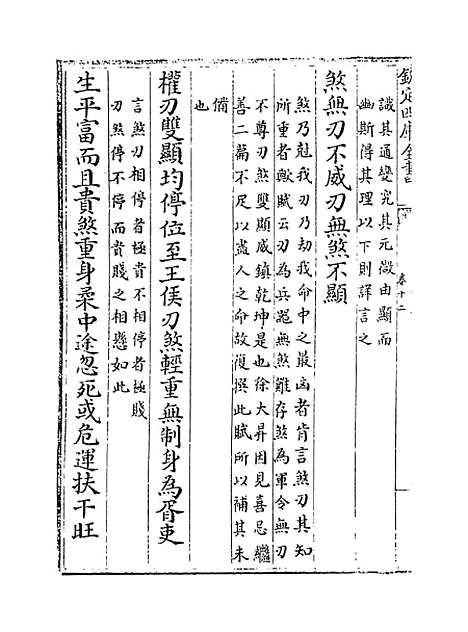 欽定四庫全書
卷十二
識其通變究其元微由顯而
幽斯得其理以下則詳言之
煞無刃不威刃無煞不顯
煞乃尅我刃乃刼我命中之最凶者肯言煞刃其知
所重者歟賦云刃為兵器無煞難存煞為軍令無刃
不尊刃煞雙顯威鎮乾坤是也徐大昇因見喜忌繼
善二篇不足以盡人之命故復撰此賦所以補其未
備
也
權刃雙顯均停位至王侯刃煞輕重無制身為胥吏
言煞刃相停者極貴不相停者極賤
刃煞停不停而貴賤之相懸如此
生平富而且貴煞重身柔中途忽死或危運扶干旺